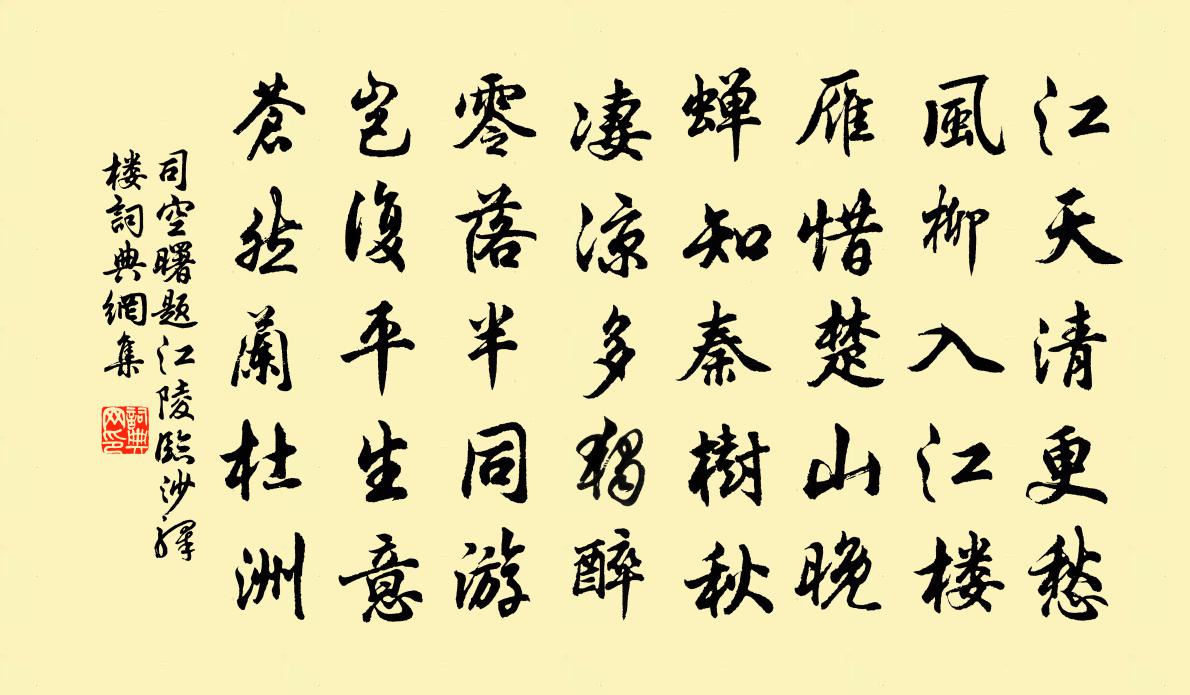 江天清更愁
風柳入江楼
雁惜楚山晚
蝉知秦樹秋
凄涼多獨醉
零落半同游
岂復平生意
蒼然蘭杜洲
司空曙题江陵臨沙驛
楼詞典網集
詞典
网印